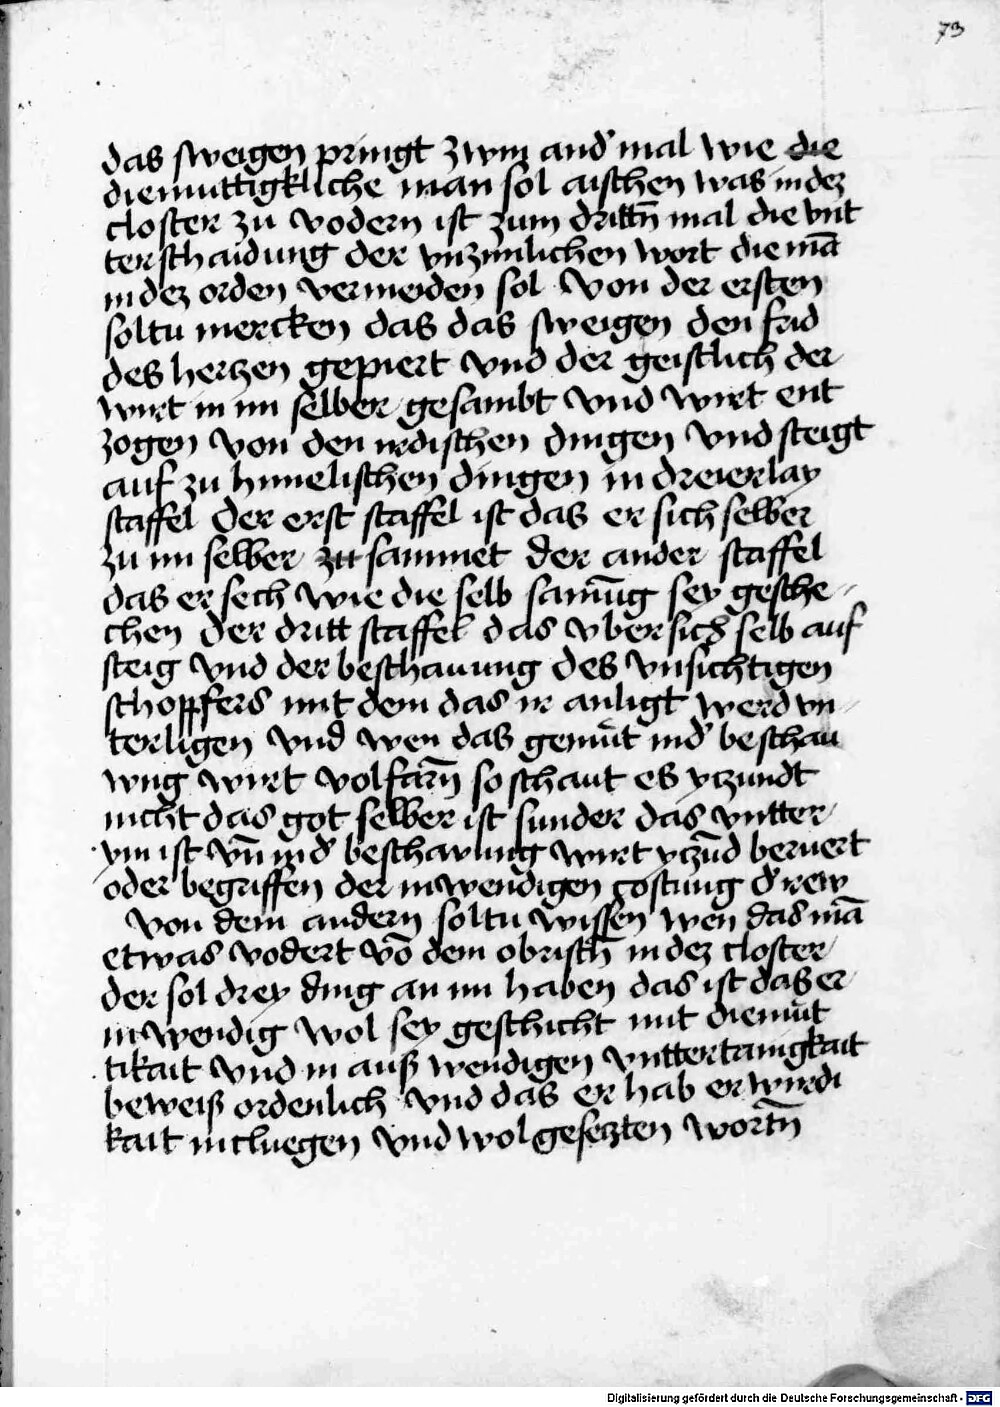 73
das sweigen pringt zwm and̉ mal wie die
diemuttigkliche man sol aischen was in dez
closter zu vodern ist zum drittn̄ mal die vnt
terschaidung der vnzimlichen wort die mā
in dez orden vermeiden sol Von der ersten
soltu mercken das das sweigen den frid
des hertzen gepiert vnd der geistlich der
wirt in im selber gesambt vnd wirt ent
zogen von den irdischen dingen vnd steigt
auf zu himelischen dingen in dreierlay
staffel Der erst staffel ist das er sich selber
zu im selber zu sammet der ander staffel
das er sech wie die selb samūg sey gesche-
chen der dritt staffel das vber sich selb auf
steig vnd der beschauung des vnsichtigen
schopffers mit dem das ir anligt werd vn-
terligen vnd wen das gemüt in d̉ beschau
wng wirt volfarn̄ so schaut es yczundt
nicht das got selber ist sunder das vntter
ym ist vn̄ in d̉ beschawung wirt yczūd beruert
oder begriffen der inwendigen costung d̉ rew
Von dem andern soltu wissen wen das mā
etwas vodert vō dem obristn̄ in dez closter
der sol drey ding an im haben das ist das er
inwendig wol sey geschicht mit diemüt
tikait vnd in auß wendigen vnttertanigkait
beweiß ordenlich vnd das er hab erwirdi
kait in cluegen vnd wol geseczten wortn̄
Digitalisierung gefördert durch die Deutsche Forschungsgemeinschaft - DFG